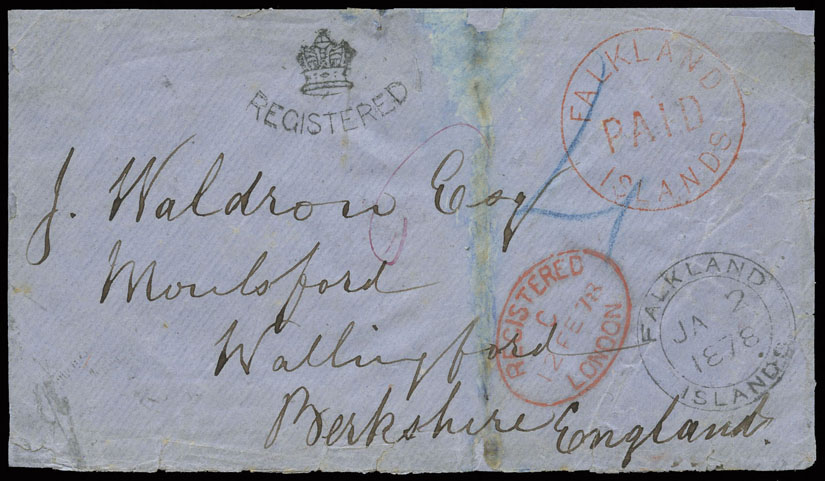 REGISTERED
FALKLAND
PAID
ISLANDS
J. Waldron Esq
Moulsford
Wallingford
Berkshire England.
REGISTERED
C
12 FE 78
LONDON
FALKLAND
JA
1878
ISLANDS